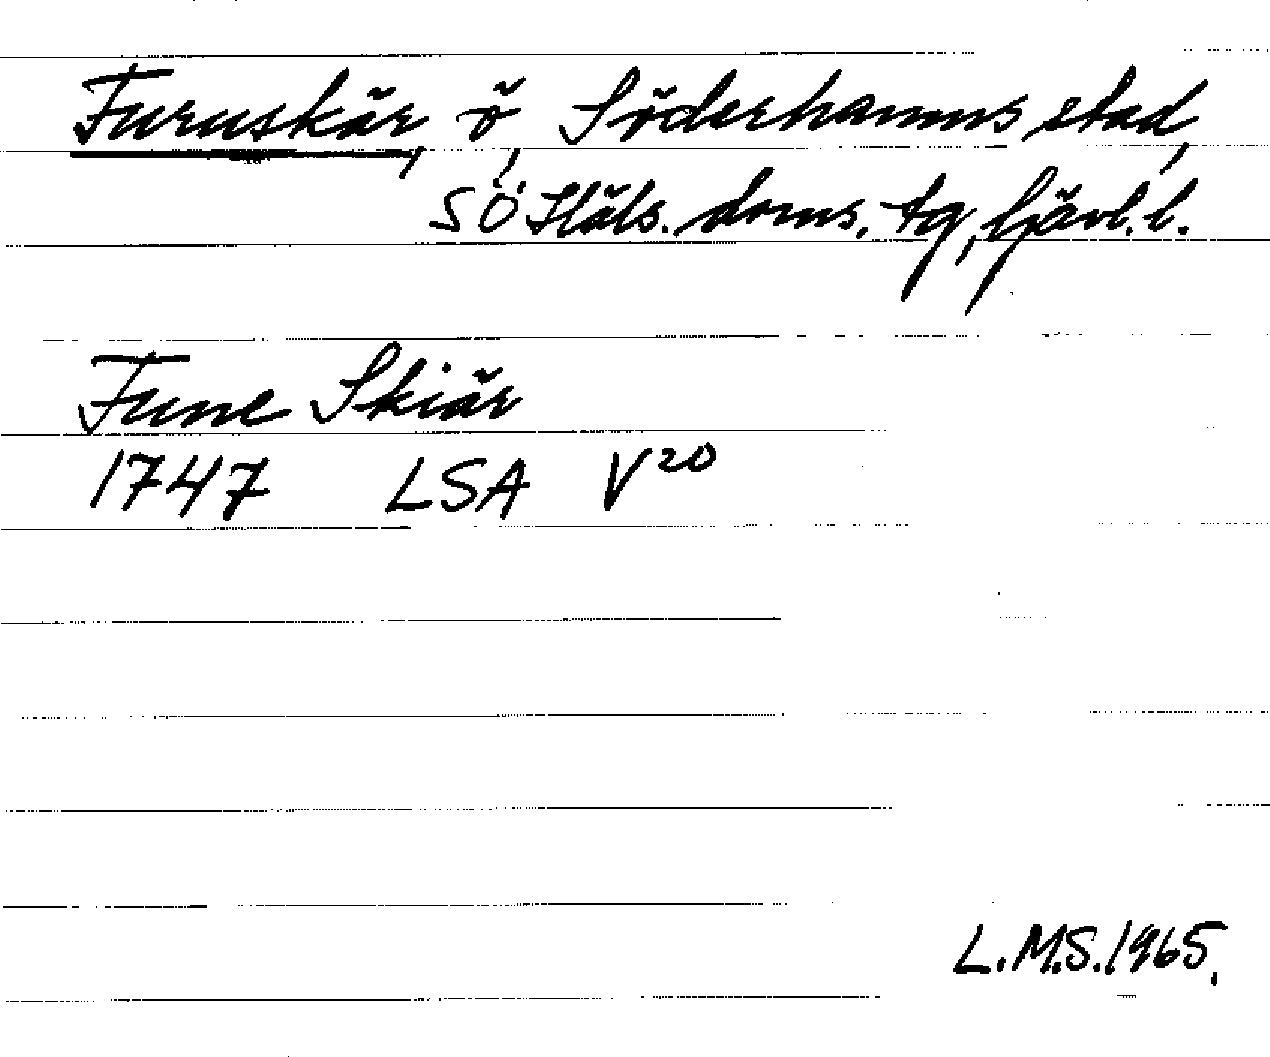 Furuskär, ö, Söderhamns stad,
SÖ Häls. doms. tg, Gävl. l.
Fune Skiär
1747 LSA V²⁰
L.M.S. 1965.